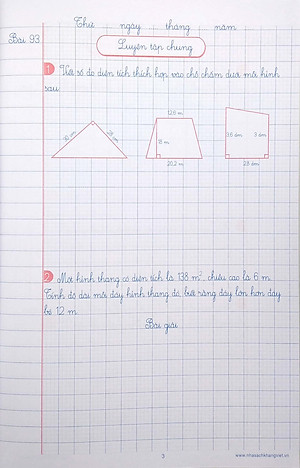 Thứ ngày tháng năm
Bài 93
Luyện tập chung
1 Viết số đo diện tích thích hợp vào chỗ chấm dưới mỗi hình
sau:
12,6 m
3,6 dm 3 dm
18 m
20,2 m
2,8 dm
2 Một hình thang có diện tích là 138 m², chiều cao là 6 m.
Tính độ dài mỗi đáy hình thang đó, biết rằng đáy lớn hơn đáy
bé 12 m.
Bài giải
3
www.nhasachkhangviet.vn